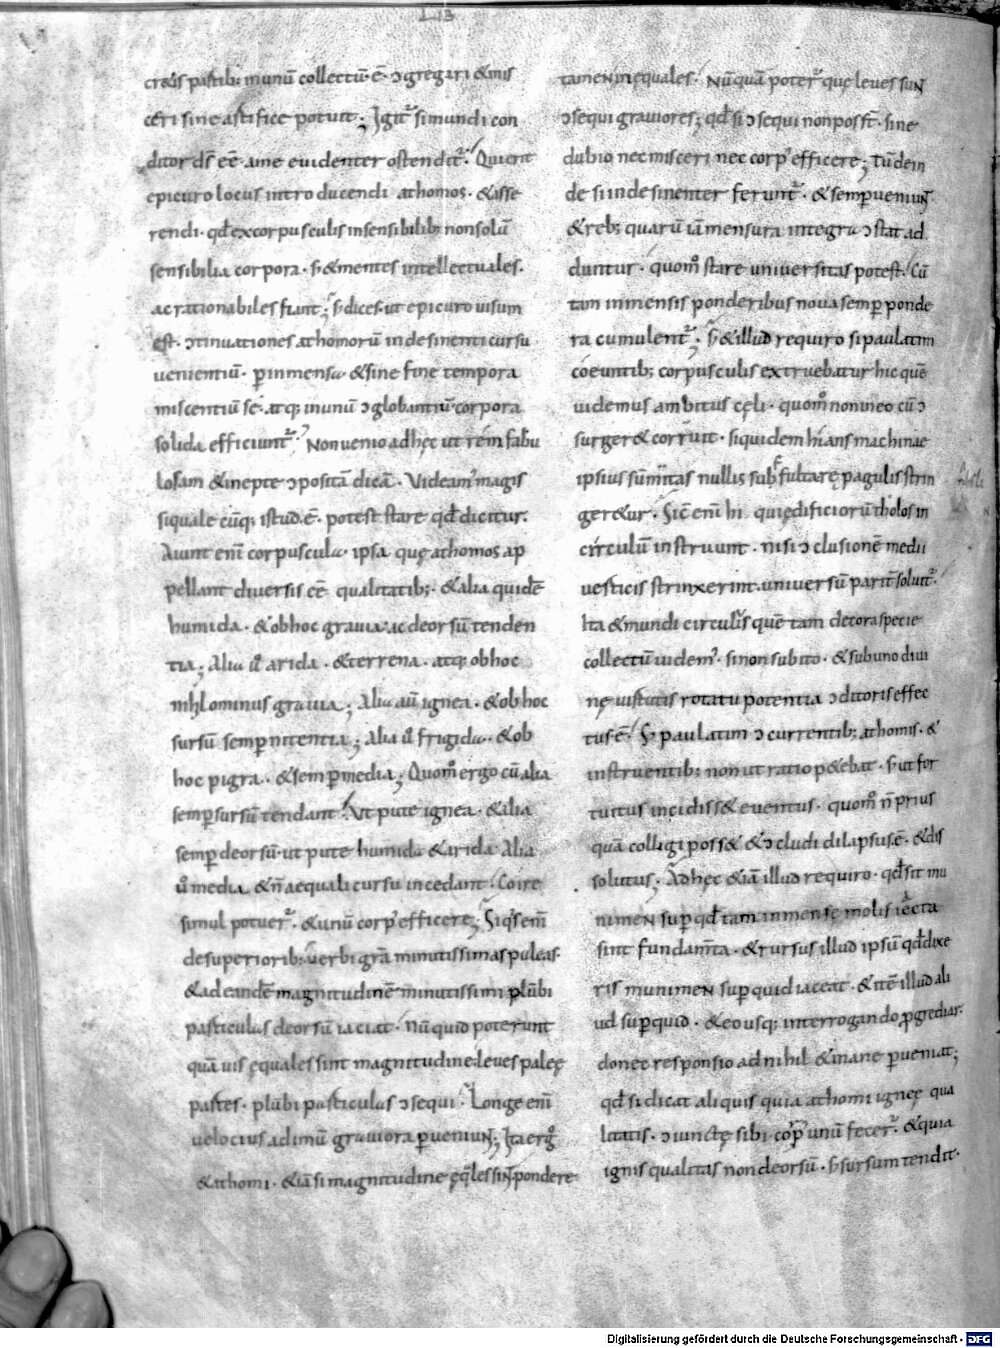 cr&is partib; inunū collectū ē· ɔgregari & mis
ceri sine artifice potuit; Igit̄ si mundi con
ditor d̄s ēē ame euidenter ostendit̄· Qui erit
epicuro locus introducendi athomos· & asse
rendi· qđ ex corpusculis insensibilib; non solū
sensibilia corpora· s; & mentes intellectuales·
ac rationabiles fiant; s; dices· ut epicuro uisum
est· ɔtinuationes athomorū indesinenti cursu
uenientiū· ꝑ inmensa & sine fine tempora
miscentiū sē· atq; inunū ɔglobantiū corpora
solida efficiunt̄· Non uenio ad hęc ut rem fabu
losam & inepte ɔpositā dicā· Videam' magis
si quale cūq; istud· ē· potest stare qđ dicitur·
Aiunt enī corpuscula ipsa quę athomos ap
pellant diuersis ēē qualitatib;· & alia quidē
humida· & ob hoc grauia ac deorsū tenden
tia; Alia ū arida· & terrena· atq; ob hoc
nihilominus grauia; Alia aū ignea· & ob hoc
sursū semꝑ nitentia; Alia ū frigida· & ob
hoc pigra· & semꝑ media; Quom̊ ergo cū alia
semꝑ sursū tendant Ut pute ignea· & alia
semꝑ deorsū· ut pute humida & arida Alia
ū media & ñ aequali cursu incedant· Coire
simul potuer̄· & unū corp' efficere; Siq's enī
de superiorib; uerbi grā minutissimas paleas·
& ad eandē magnitudinē minutissimi plūbi
particulas deorsū iaciat· nū quid poterunt
quā uis ęquales sint magnitudine leues paleę
partes· plūbi particulas ɔsequi· Longe enī
uelocius ad imū grauiora ꝑueniuɴt; Ita erg̊
& athomi· & iā si magnitudine ęq̄les sint pondere
tamen inequales· Nū quā poter̄ que leues sunt
ɔsequi grauiores; qđ si ɔsequi non poss̄t· sine
dubio nec misceri nec corp' efficere; Tū dein
de si indesinenter ferunt̄· & semꝑ ueniunt·
& reb; quarū iā mensura integra ɔstat ad
duntur· quom̊ stare uniuersitas potest· Cū
tam inmensis ponderibus noua semꝑ ponde
ra cumulent̄· s; & illud requiro si paulatim
coeuntib; corpusculis extruebatur hic quē
uidemus ambitus cęli· quom̊ non in eo cū ɔ
surger& corruit· siquidem hians machinae
ipsius sūmitas nullis subfultare pagulis strin
ger&ur· Sic enī hi qui ędificiorū tholos in
circulū instruunt· nisi ɔclusionē medii
uesticis strinxerint· uniuersū parit̄ soluit̄·
Ita & mundi circulus quē tam decora specie
collectū uidem'· si non subito· & sub uno diui
nę uirtutis rotatu potentia ɔditoris effec
tus ē· S; paulatim ɔcurrentib; athomis· &
instruentib; non ut ratio p&ebat· s; ut for
tuitus incidiss& euentus· quom̊ ñ prius
quā colligi poss& & ɔcludi dilapsus ē· & dis
solutus; Ad hęc & iā illud requiro· qđ sit mu
nimen suꝑ qđ tam inmensę molis iecta
sint fundam̄ta· & rursus illud ipsū qđ dixe
ris munimen suꝑ quid iaceat· & itē illud ali
ud suꝑ quid· & eo usq; interrogando ꝓgrediar·
donec responsio ad nihil & inane ꝑueniat;
qđ si dicat aliquis quia athomi ignęę qua
litatis· ɔiunctę sibi corp' unū fecer̄· & quia
ignis qualitas non deorsū· s; sursum tendit·